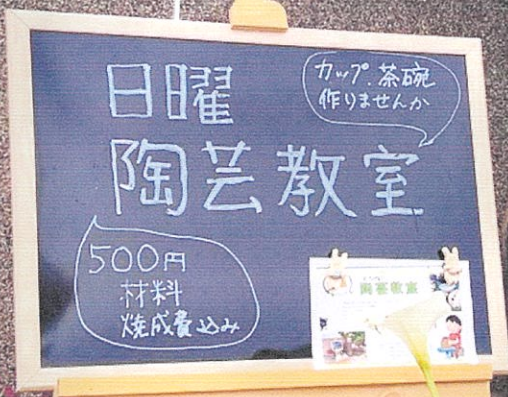 日曜
陶芸教室
カップ.茶碗
作りませんか
500円
材料
焼成費込み
陶芸教室